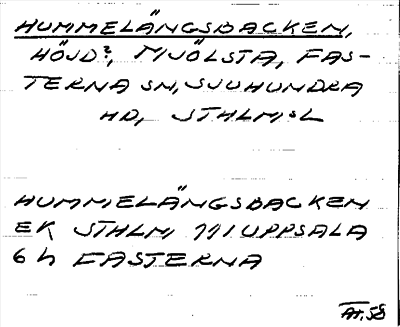 HUMMELÄNGSBACKEN,
HÖJD?, MJÖLSTA, FAS-
TERNA SN, SJUHUNDRA
HD, STHLMS L
HUMMELÄNGSBACKEN
EK STHLM 111 UPPSALA
6 h FASTERNA
At. 58